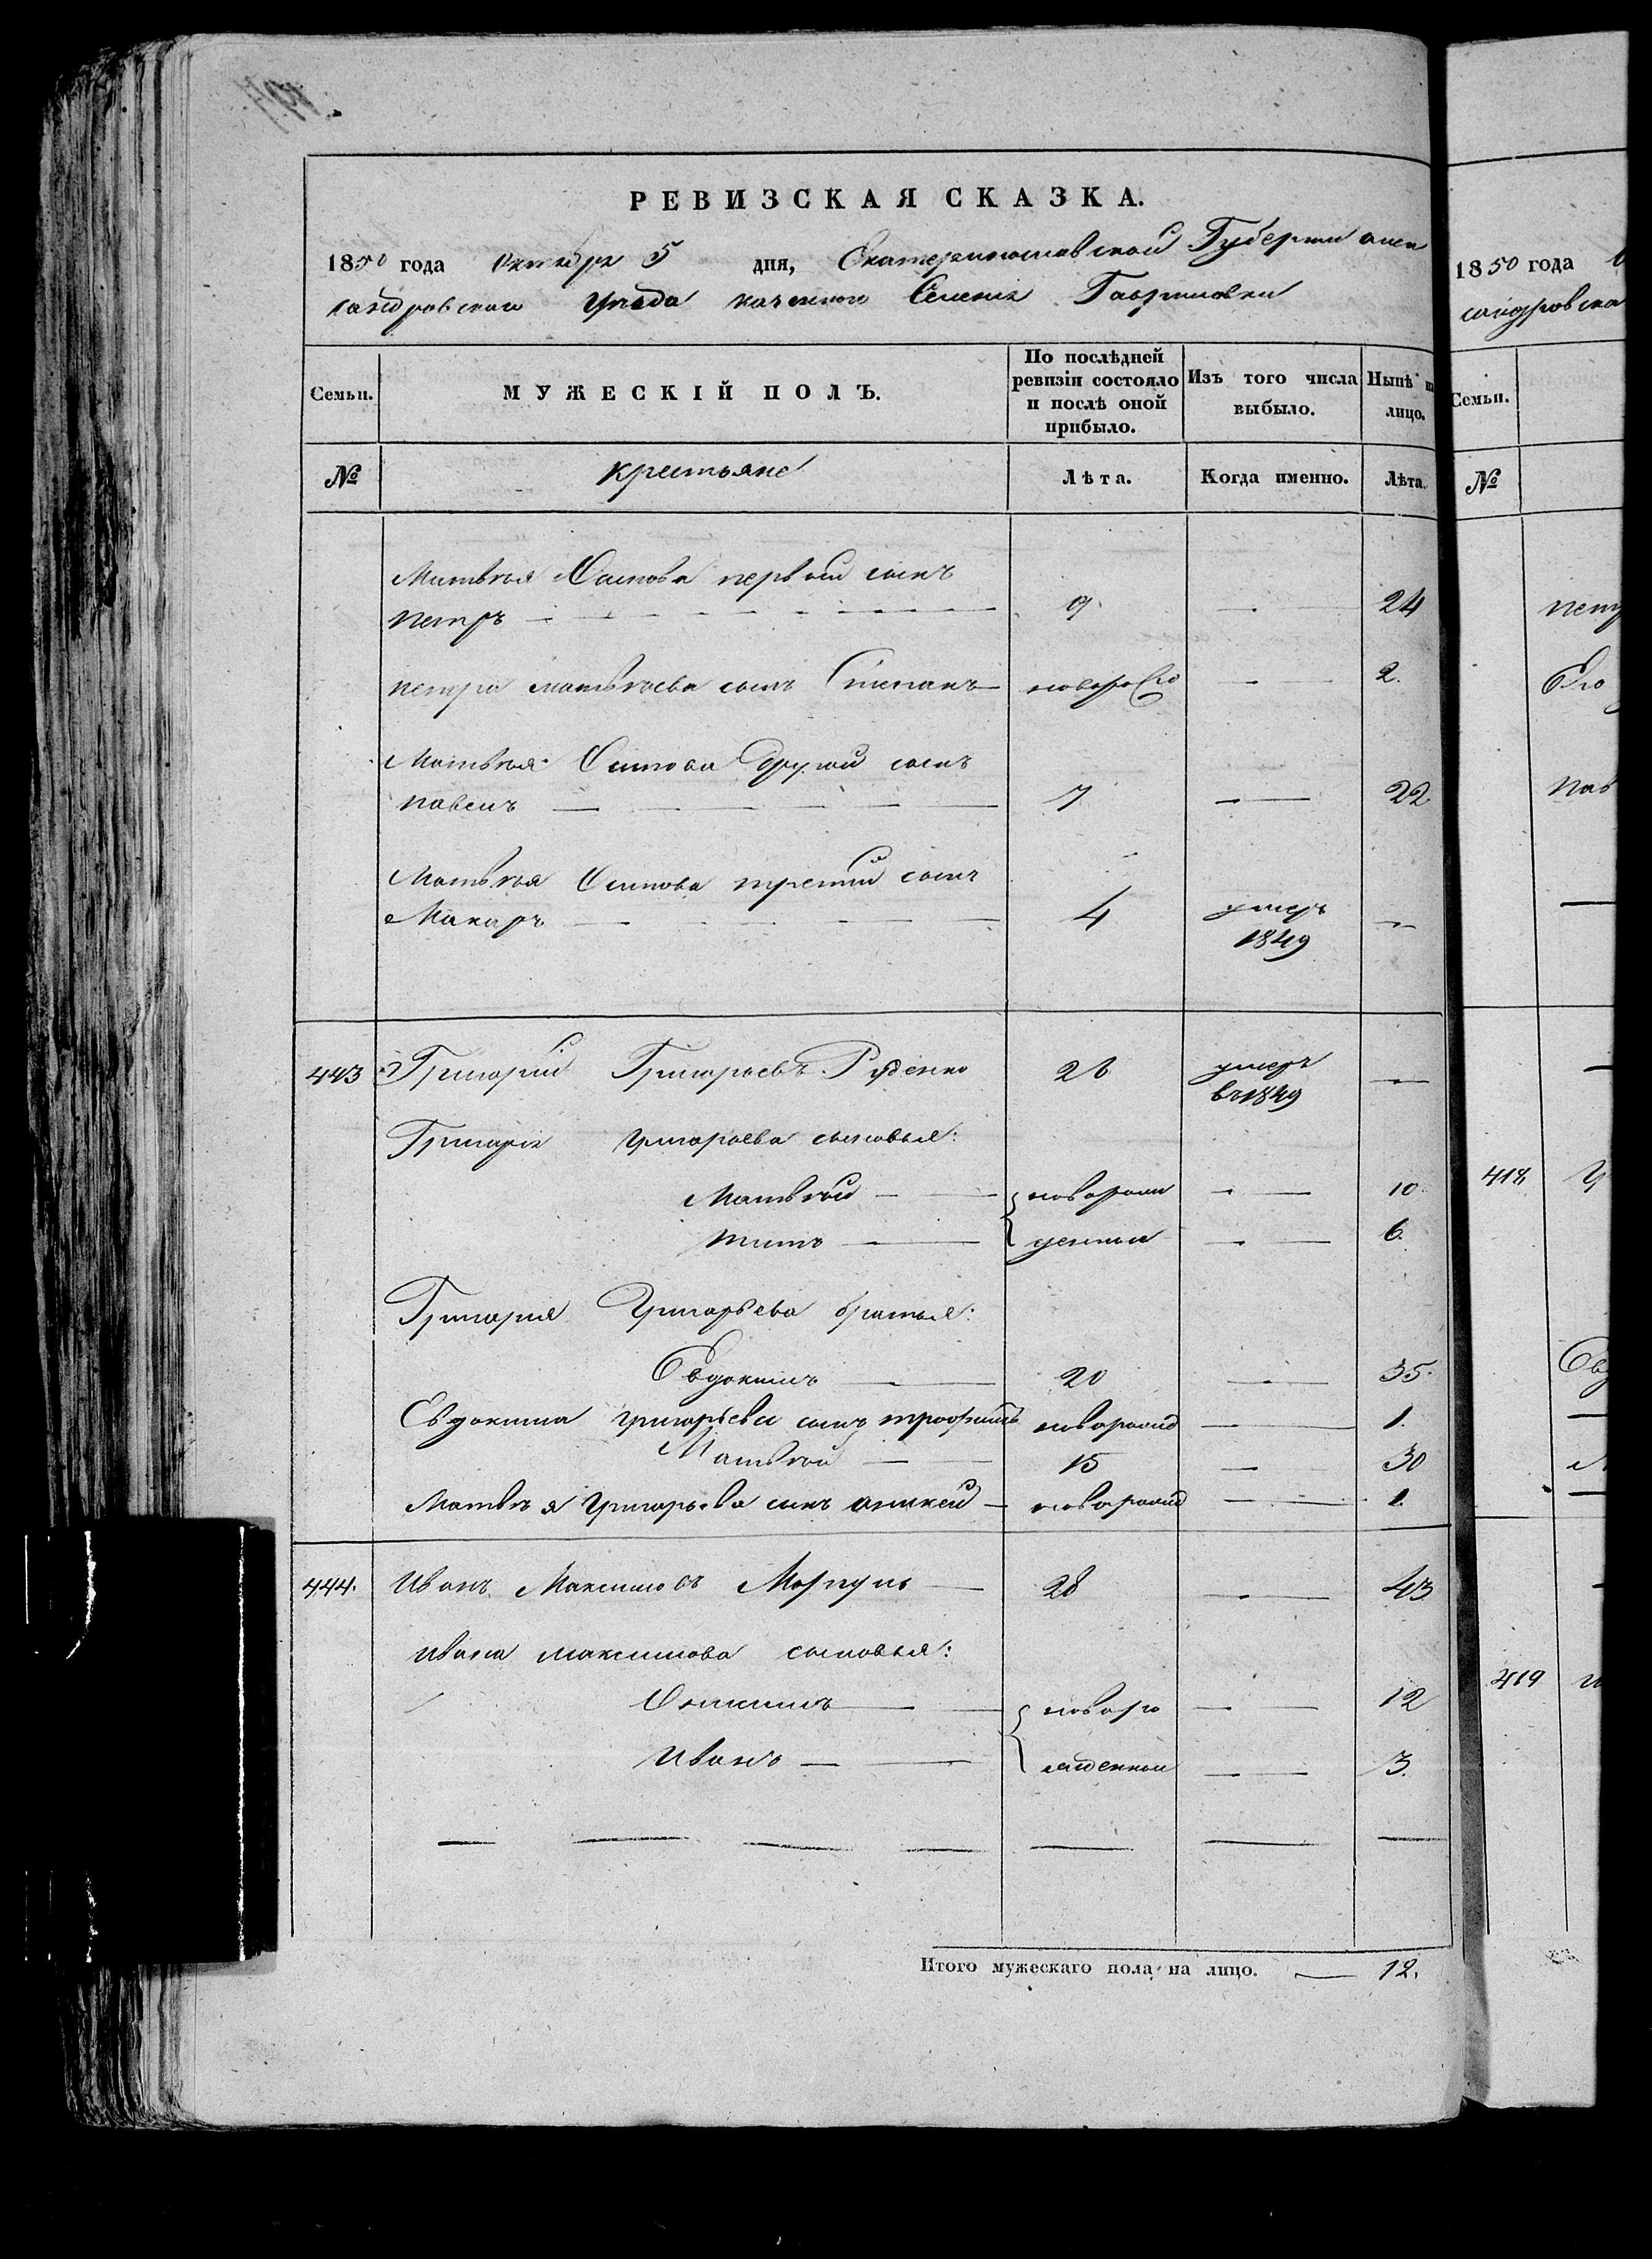 РЕВИЗСКАЯ СКАЗКА.
1850 года Октября 5 дня, Екатеринославской Губернии Алек
сандровскаго Уезда казенного Селенія Гавриловки
Семьи.
МУЖЕСКІЙ ПОЛЪ.
По послѣдней ревизіи состояло и послѣ оной прибыло.
Изъ того числа выбыло.
Нынѣ
лицо.
№ крестьяне Лѣта. Когда именно. Лѣта.
Матвѣя Осипова первый сынъ
Петръ — 9 — 24
Петра Матвѣева сынъ Степанъ — новоро — 2.
Матвѣя Осипова другой сынъ
Павелъ — 7 — 22
Матвѣя Осипова третій сынъ
Макаръ — 4 умеръ 1849 —
443 Григорій Григорьевъ Руденко 26 умеръ въ 1849 —
Григорія Григорьева сыновья:
Матвѣй — новорож — 10
Титъ — денныи — 6.
Григорія Григорьева братья:
Евдокимъ — 20 — 35.
Евдокима Григорьева сынъ Трофимъ новорожд — 1.
Матвѣй — 15 — 30
Матвѣя Григорьева сынъ Аникей — новорожд — 1.
444. Иванъ Максимовъ — 28 — 43
Ивана Максимова сыновья:
— новоро — 12
Иванъ — жденныи — 3.
Итого мужескаго пола на лицо. — 12.
1850 года
сандровска
Семьи.
№
Петр
Его
Пав
418
Евд
419